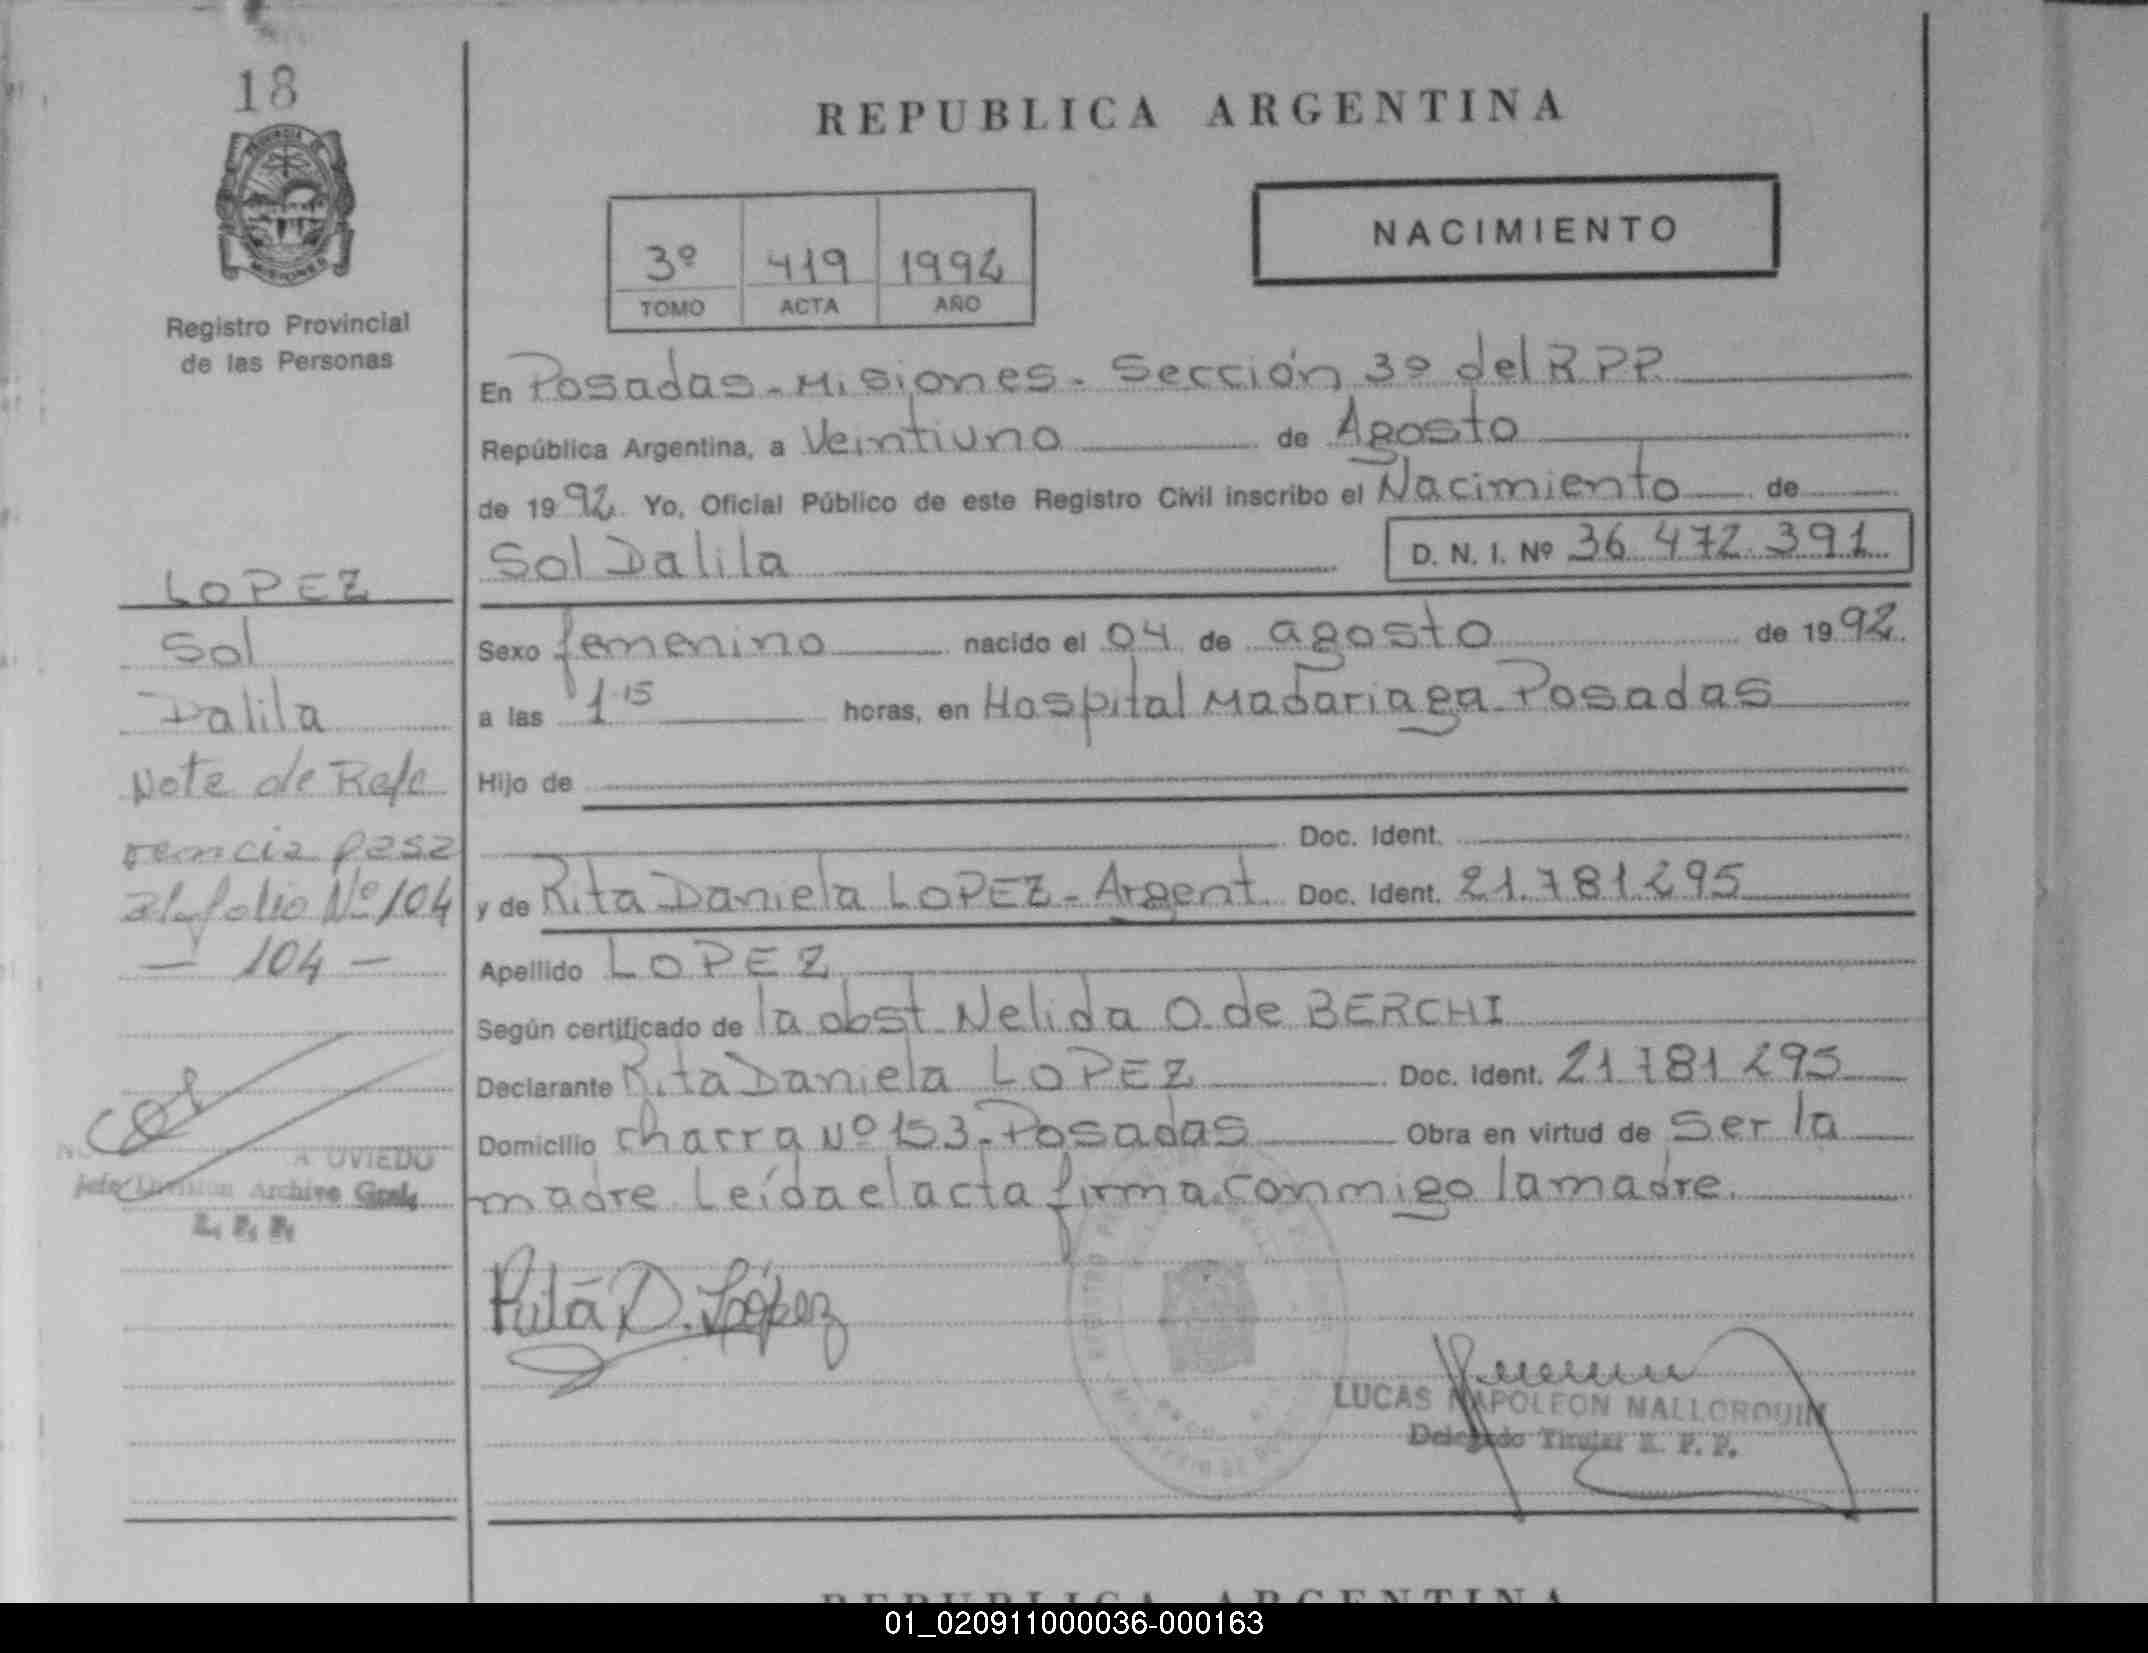 18
REPUBLICA ARGENTINA
NACIMIENTO
3º 419 1992
TOMO ACTA AÑO
Registro Provincial
de las Personas
En Posadas - Misiones - Sección 3º del R P P.
República Argentina, a Veintiuno de Agosto
de 1992 Yo, Oficial Público de este Registro Civil inscribo el Nacimiento de
Sol Dalila D. N. I. Nº 36 472 391
LOPEZ
Sol
Dalila
Note de Refe
rencia pasa
al folio Nº 104
— 104 —
Sexo femenino nacido el 04 de agosto de 1992.
a las 1 15 horas, en Hospital Madariaga - Posadas
Hijo de
Doc. Ident.
y de Rita Daniela LOPEZ - Argent. Doc. Ident. 21.781.295
Apellido LOPEZ
Según certificado de la obst Nelida O. de BERCHI
Declarante Rita Daniela LOPEZ Doc. Ident. 21 781 295
Domicilio charra Nº 153 - Posadas Obra en virtud de ser la
madre. Leída el acta firma conmigo la madre.
A OVIEDO
Jefe Division Archivo Gral.
R. P. P.
Rita D. López
LUCAS NAPOLEON MALLORQUIN
Delegado Titular R. P. P.
REPUBLICA ARGENTINA
01_020911000036-000163